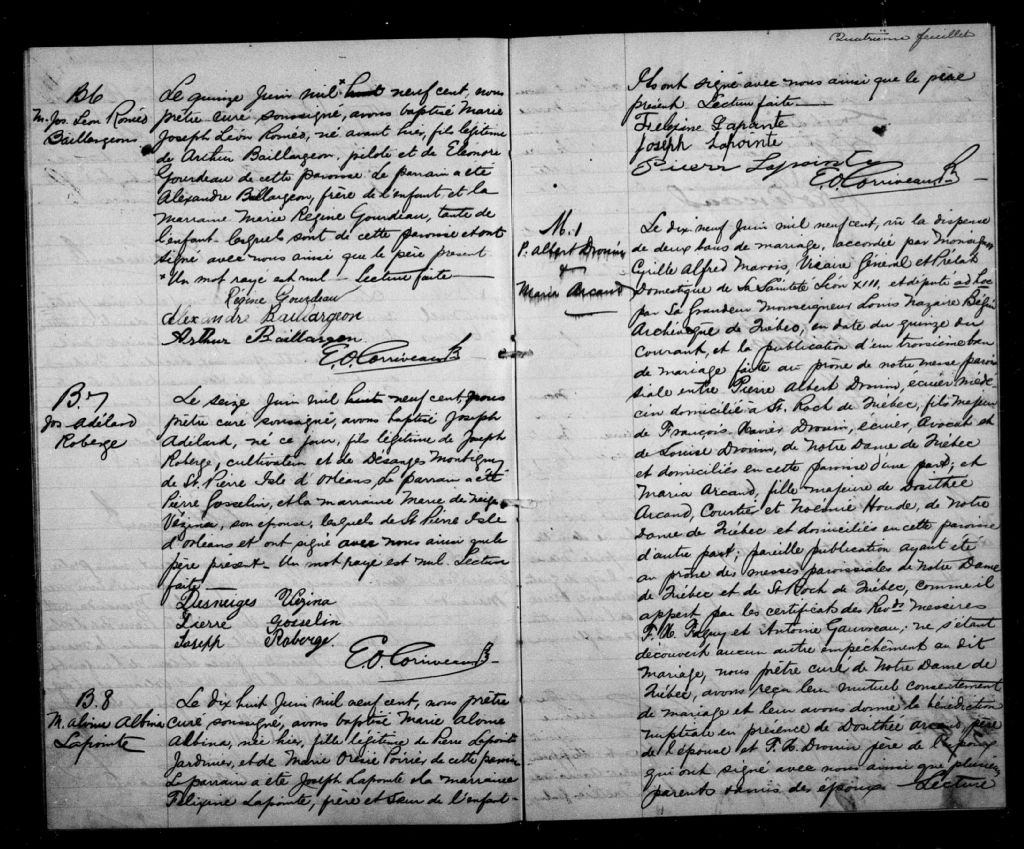 B6
M. Jos. Léon Roméo
Baillargeon
Le quinze Juin mil * huit neuf cent, nous
prêtre curé soussigné, avons baptisé Marie
Joseph Léon Roméo, né avant hier, fils légitime
de Arthur Baillargeon, pilote et de Eléonore
Gourdeau de cette paroisse le parrain a été
Alexandre Baillargeon, frère de l'enfant et la
marraine Marie Regine Gourdeau, tante de
l'enfant lesquels sont de cette paroisse et ont
signé avec nous ainsi que le père présent
* Un mot rayé est nul - Lecture faite
Régine Gourdeau
Alexandre Baillargeon
Arthur Baillargeon
E.O. Corriveau
B.7
Jos. Adélard
Roberge
Le seize Juin mil huit neuf cent, nous
prêtre curé soussigné, avons baptisé Joseph
Adélard, né ce jour, fils légitime de Joseph
Roberge, cultivateur et de Désanges Montigny
de St. Pierre Isle d'Orléans, Le parrain a été
Pierre Gosselin, et la marraine Marie de neige
Vézina, son épouse, lesquels de St Pierre Isle
d'Orléans et ont signé avec nous ainsi que le
père présent - Un mot rayé est nul. Lecture
faite
Desneiges Vézina
Pierre Gosselin
Joseph Roberge
E.O. Corriveau
B.8
M. Alvine Albina
Lapointe
Le dix huit Juin mil neuf cent, nous prêtre
curé soussigné, avons baptisé Marie
Albina, née hier, fille légitime de Pierre Lapointe
Jardinier, et de Marie Poirier de cette paroisse
Le parrain a été Joseph Lapointe et la marraine
Felixine Lapointe, frère et sœur de l'enfant-
Quatrième feuillet
Ils ont signé avec nous ainsi que le père
présent Lecture faite
Felixine Lapointe
Joseph Lapointe
Pierre Lapointe
E.O. Corriveau
M.1
P. Albert Drouin
&
Maria Arcand
Le dix neuf Juin mil neuf cent, vu la dispense
de deux bans de mariage, accordée par Monseigneur
Cyrille Alfred Marois, Vicaire Général et Prélat
Domestique de Sa Sainteté Léon XIII, et député ad hoc
par Sa Grandeur Monseigneur Louis Nazaire Bégin
Archevêque de Québec, en date du quinze du
courant, et la publication d'un troisième ban
de mariage faite au prône de notre messe parois
siale entre Pierre Albert Drouin, écuier Méde-
cin domicilié à St. Roch de Québec, fils majeur
de François-Xavier Drouin, écuier, Avocat et
de Louise Drouin, de Notre Dame de Québec
et domiciliés en cette paroisse d'une part; et
Maria Arcand, fille majeure de Dosithée
Arcand, Courtier et Noémie Houde, de Notre
Dame de Québec et domiciliés en cette paroisse
d'autre part; pareille publication ayant été
au prône des messes paroissiales de Notre Dame
de Québec et de St Roch de Québec, comme il
appert par les certificats des Revds messires
F. X. Faguy et Antoine Gauvreau; ne s'étant
découvert aucun autre empêchement au dit
mariage, nous prêtre curé de Notre Dame de
Québec, avons reçu leur mutuel consentement
de mariage et leur avons donné la bénédiction
nuptiale en présence de Dosithé Arcand père
de l'épouse et F. X. Drouin père de l'époux
qui ont signé avec nous ainsi que plusieurs
parents & amis des époux - Lecture